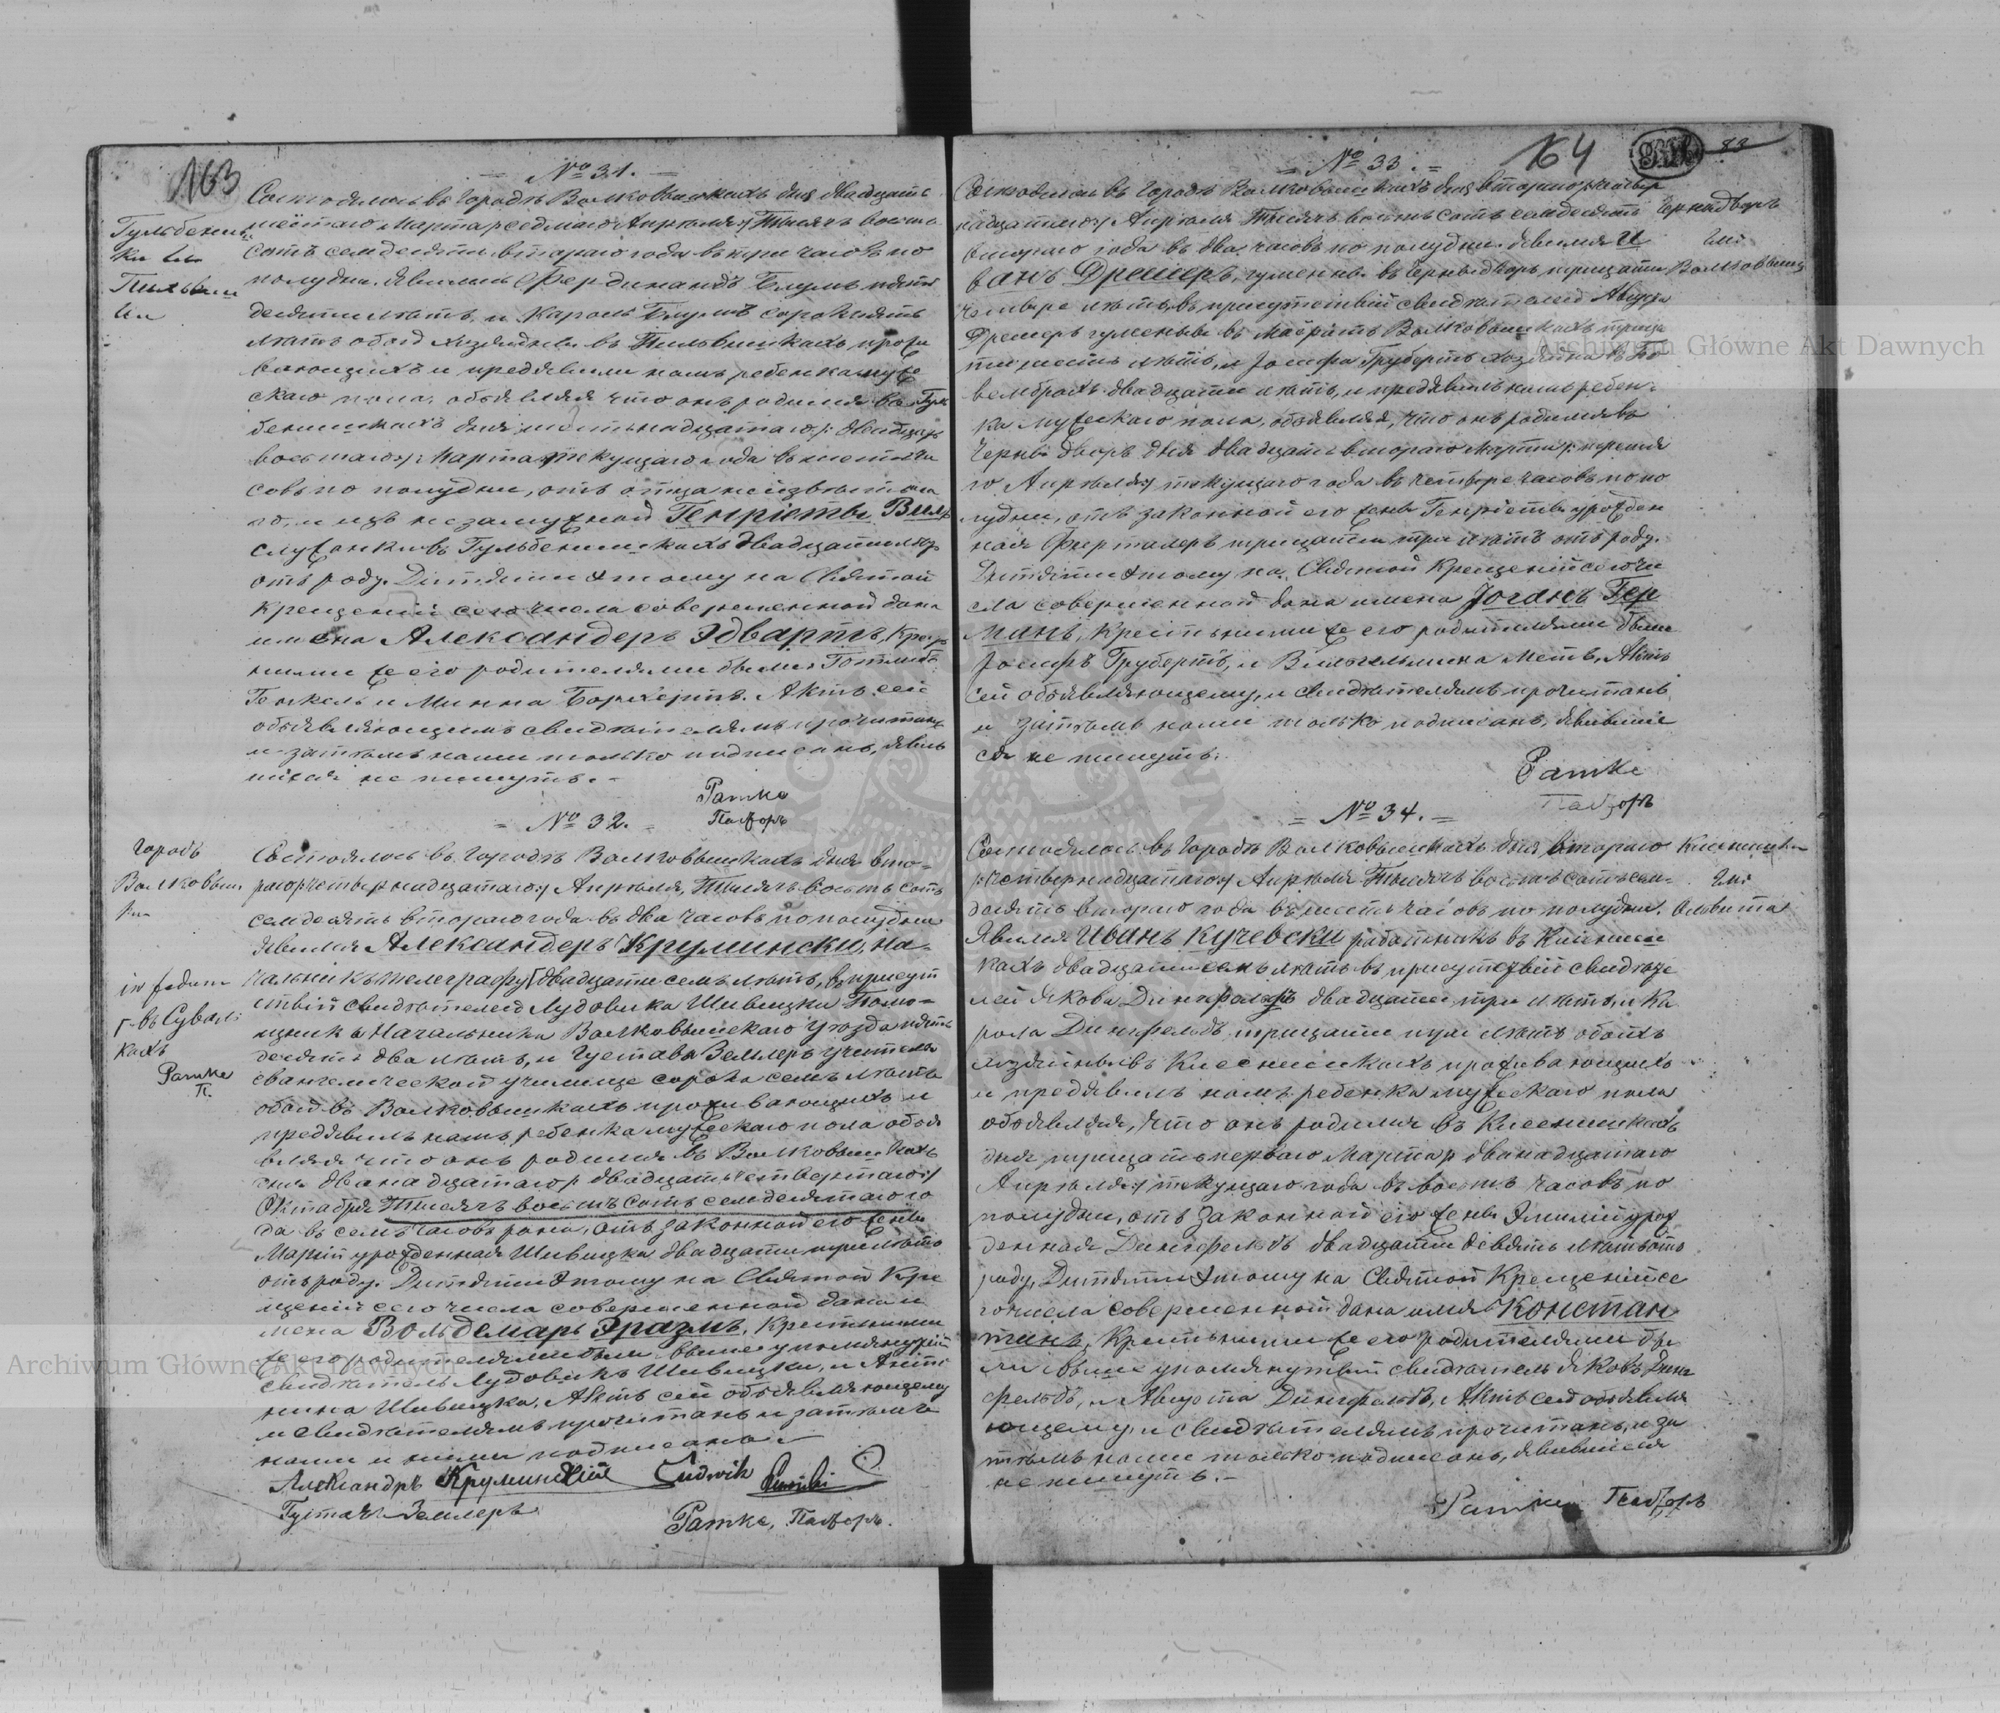 163
№ 31.
Гульбениш-
ки и
Пильвиш
ки
Состоялось въ городѣ Волковышкахъ дня двадцать
шестаго Марта /:седмаго Апрѣля:/ Тысячъ восемь
сотъ семдесятъ втораго года въ три часовъ по
полудни. Явились Фердинандъ Блумъ пять
десяти лѣтъ, и Кароль Блумъ сорокъ лѣтъ
обаи хозяйны въ Пильвишкахъ прожи
вающихъ и предявили намъ ребенка муже
скаго пола, объявляя что онъ родился въ Гуль
бенишкахъ дня
восьмаго:/ Марта текущаго года въ шесть ча
совъ по полудни, отъ отца неизвѣстна
го, и изъ незамужной Генріеты Вилл
служанки въ Гульбенишкахъ двадцати лѣтъ
отъ роду. Дитяти этому на Святой
Крещеніи сего числа совершенной дана
имена Александеръ Эдвартъ, Крест
ними же его родителями были: Готлибъ
Генкель и Минна Борхертъ. Актъ сей
объявляющимъ свидѣтелямъ прочитанъ
и затѣмъ нами только подписанъ, явив
шіеся не пишутъ.-
Ратке
Пасторъ
= № 32. =
городъ
Волковыш
ки
in fidem
г. въ Сувал
кахъ
Ратке
П.
Состоялось въ городѣ Волковышкахъ дня вто-
раго /:четырнадцатаго:/ Апрѣля, Тысячъ восемь сотъ
семдесятъ втораго года въ два часовъ по полудни
Явился Александеръ Крумински, на-
чальникъ телеграфу двадцати семъ лѣтъ, въ присут
ствіи свидѣтелей Лудовика Шивицки Помо-
щника Начальника Волковышскаго Уѣзда пять
десятъ два лѣтъ, и Густава Землеръ учителя
евангелической училище сорокъ семъ лѣтъ
обаи въ Волковышкахъ проживающихъ и
предявилъ намъ ребенка мужескаго пола объя
вляя что онъ родился въ Волковышкахъ
дня двѣнадцатаго /:двадцать четвертаго:/
Октября Тысячъ восемь сотъ семдесятаго го
да въ семъ часовъ рано, отъ законной его жены
Маріи урожденная Шивицка двадцати три лѣтъ
отъ роду. Дитяти этому на Святой Кре
щеніи сего числа совершенной дана и
мена Вольдемаръ Эразмъ, Крестними
же его родителями были: выше упомянутій
свидѣтель Лудовикъ Шивицки, и Анто
нина Шивицка, Актъ сей объявляющему
и свидѣтелямъ прочитанъ и затѣмъ
нами и ними подписанъ.-
Александръ Круминскій Ludwik
Густавъ Земперъ
Ратке, Пасторъ.
= № 33. =
164
83
Чернидворъ
и
Волковышки
Состоялось въ городѣ Волковышкахъ дня втораго /:четыр
надцатаго:/ Апрѣля Тысячъ восемь сотъ семдесятъ
втораго года въ два часовъ по полудни. Явился И
ванъ Дрешеръ, гуменны въ Чернидворъ трицати
четыре лѣтъ, въ присутствіи свидѣтелей Августа
Дрешеръ гуменны въ Маіоратъ Волковышкахъ трица
ти шесть лѣтъ, и Іосифа Грубертъ хозяйна въ Но
вемброхъ двадцати лѣтъ, и предявилъ намъ ребен-
ка мужескаго пола, объявляя, что онъ родился въ
Черны дворъ дня двадцать втораго Марта /:третья
го Апрѣля:/ текущаго года въ четыре часовъ по по
лудни, отъ законной его жены Генріеты урожден
ная Ферталеръ трицати три лѣтъ отъ роду.
Дитяти этому на Святой Крещеніи сего чи
сла совершенной дана имена Іоганъ Гер
манъ, Крестьними же его родителями были
Іосифъ Грубертъ, и Вильгельмина Метъ, Актъ
сей объявляющему, и свидѣтелямъ прочитанъ
и затѣмъ нами только подписанъ, явившіе
ся не пишутъ.
Ратке
Пасторъ
= № 34. =
Клиснишки
и
Ольвита
Состоялось въ городѣ Волковышкахъ дня втораго
/:четвернадцатаго:/ Апрѣля Тысячъ восемь сотъ сем-
десятъ втораго года въ шесть часовъ по полудни.
Явился Иванъ Кучевски работникъ въ Клисниш
кахъ двадцати семъ лѣтъ въ присутствіи свидѣте
лей Якова Динфельдъ двадцати три лѣтъ, и Ка
рола Динфельдъ трицати три лѣтъ обоихъ
хозяйны въ Клиснишкахъ проживающихъ
и предявилъ намъ ребенка мужескаго пола
объявляя, что онъ родился въ Клиснишкахъ
дня трицать перваго Марта /:двѣнадцатаго
Апрѣля:/ текущаго года въ восемь часовъ по
полудни, отъ законной его жены Эмиліи урож
денная Динфельдъ двадцати девять лѣтъ отъ
роду, Дитяти этому на Святой Крещеніи се
го числа совершенной дана имя Констан
тинъ, Крестьними же его родителями бы
ли выше упомянутый свидѣтель Яковъ Дин
фельдъ, и Августа Динфельдъ, Актъ сей объявля
ющему и свидѣтелямъ прочитанъ, и за
тѣмъ нами только подписанъ, явившіеся
не пишутъ.-
Ратке Пасторъ
Archiwum Główne Akt Dawnych
Archiwum Główne Akt Dawnych